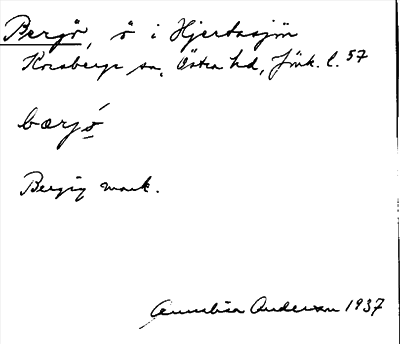 Bergö, ö i Hjertasjön
Korsberga sn, Östra hd, Jönk. l. 57
bærjö́
Bergig mark.
Annalisa Andersson 1937